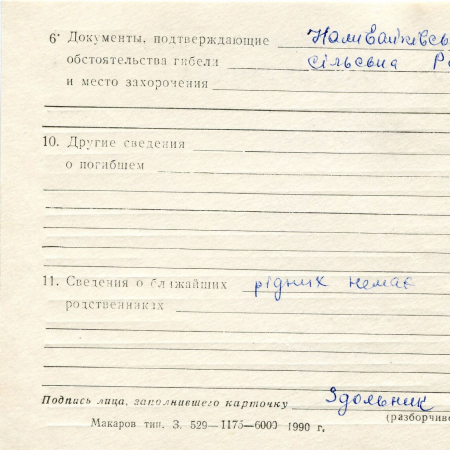 6· Документы, подтверждающие Наливайківсь
обстоятельства гибели сільська Ра
и место захоронения
10. Другие сведения
о погибшем
11. Сведения о ближайших рідних немає
родственниках
Подпись лица, заполнившего карточку Здольник
(разборчиво
Макаров тип. З. 529—1175—6000 1990 г.